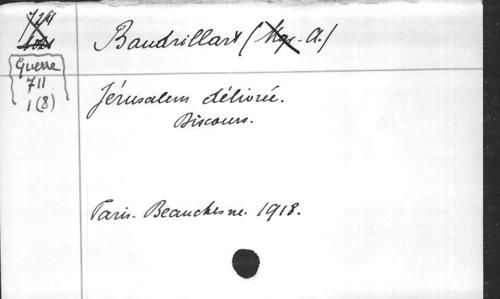 Baudrillart (Mgr A.)
Guerre
711
1(8)
Jérusalem délivrée.
Discours.
Paris. Beauchesne. 1918.